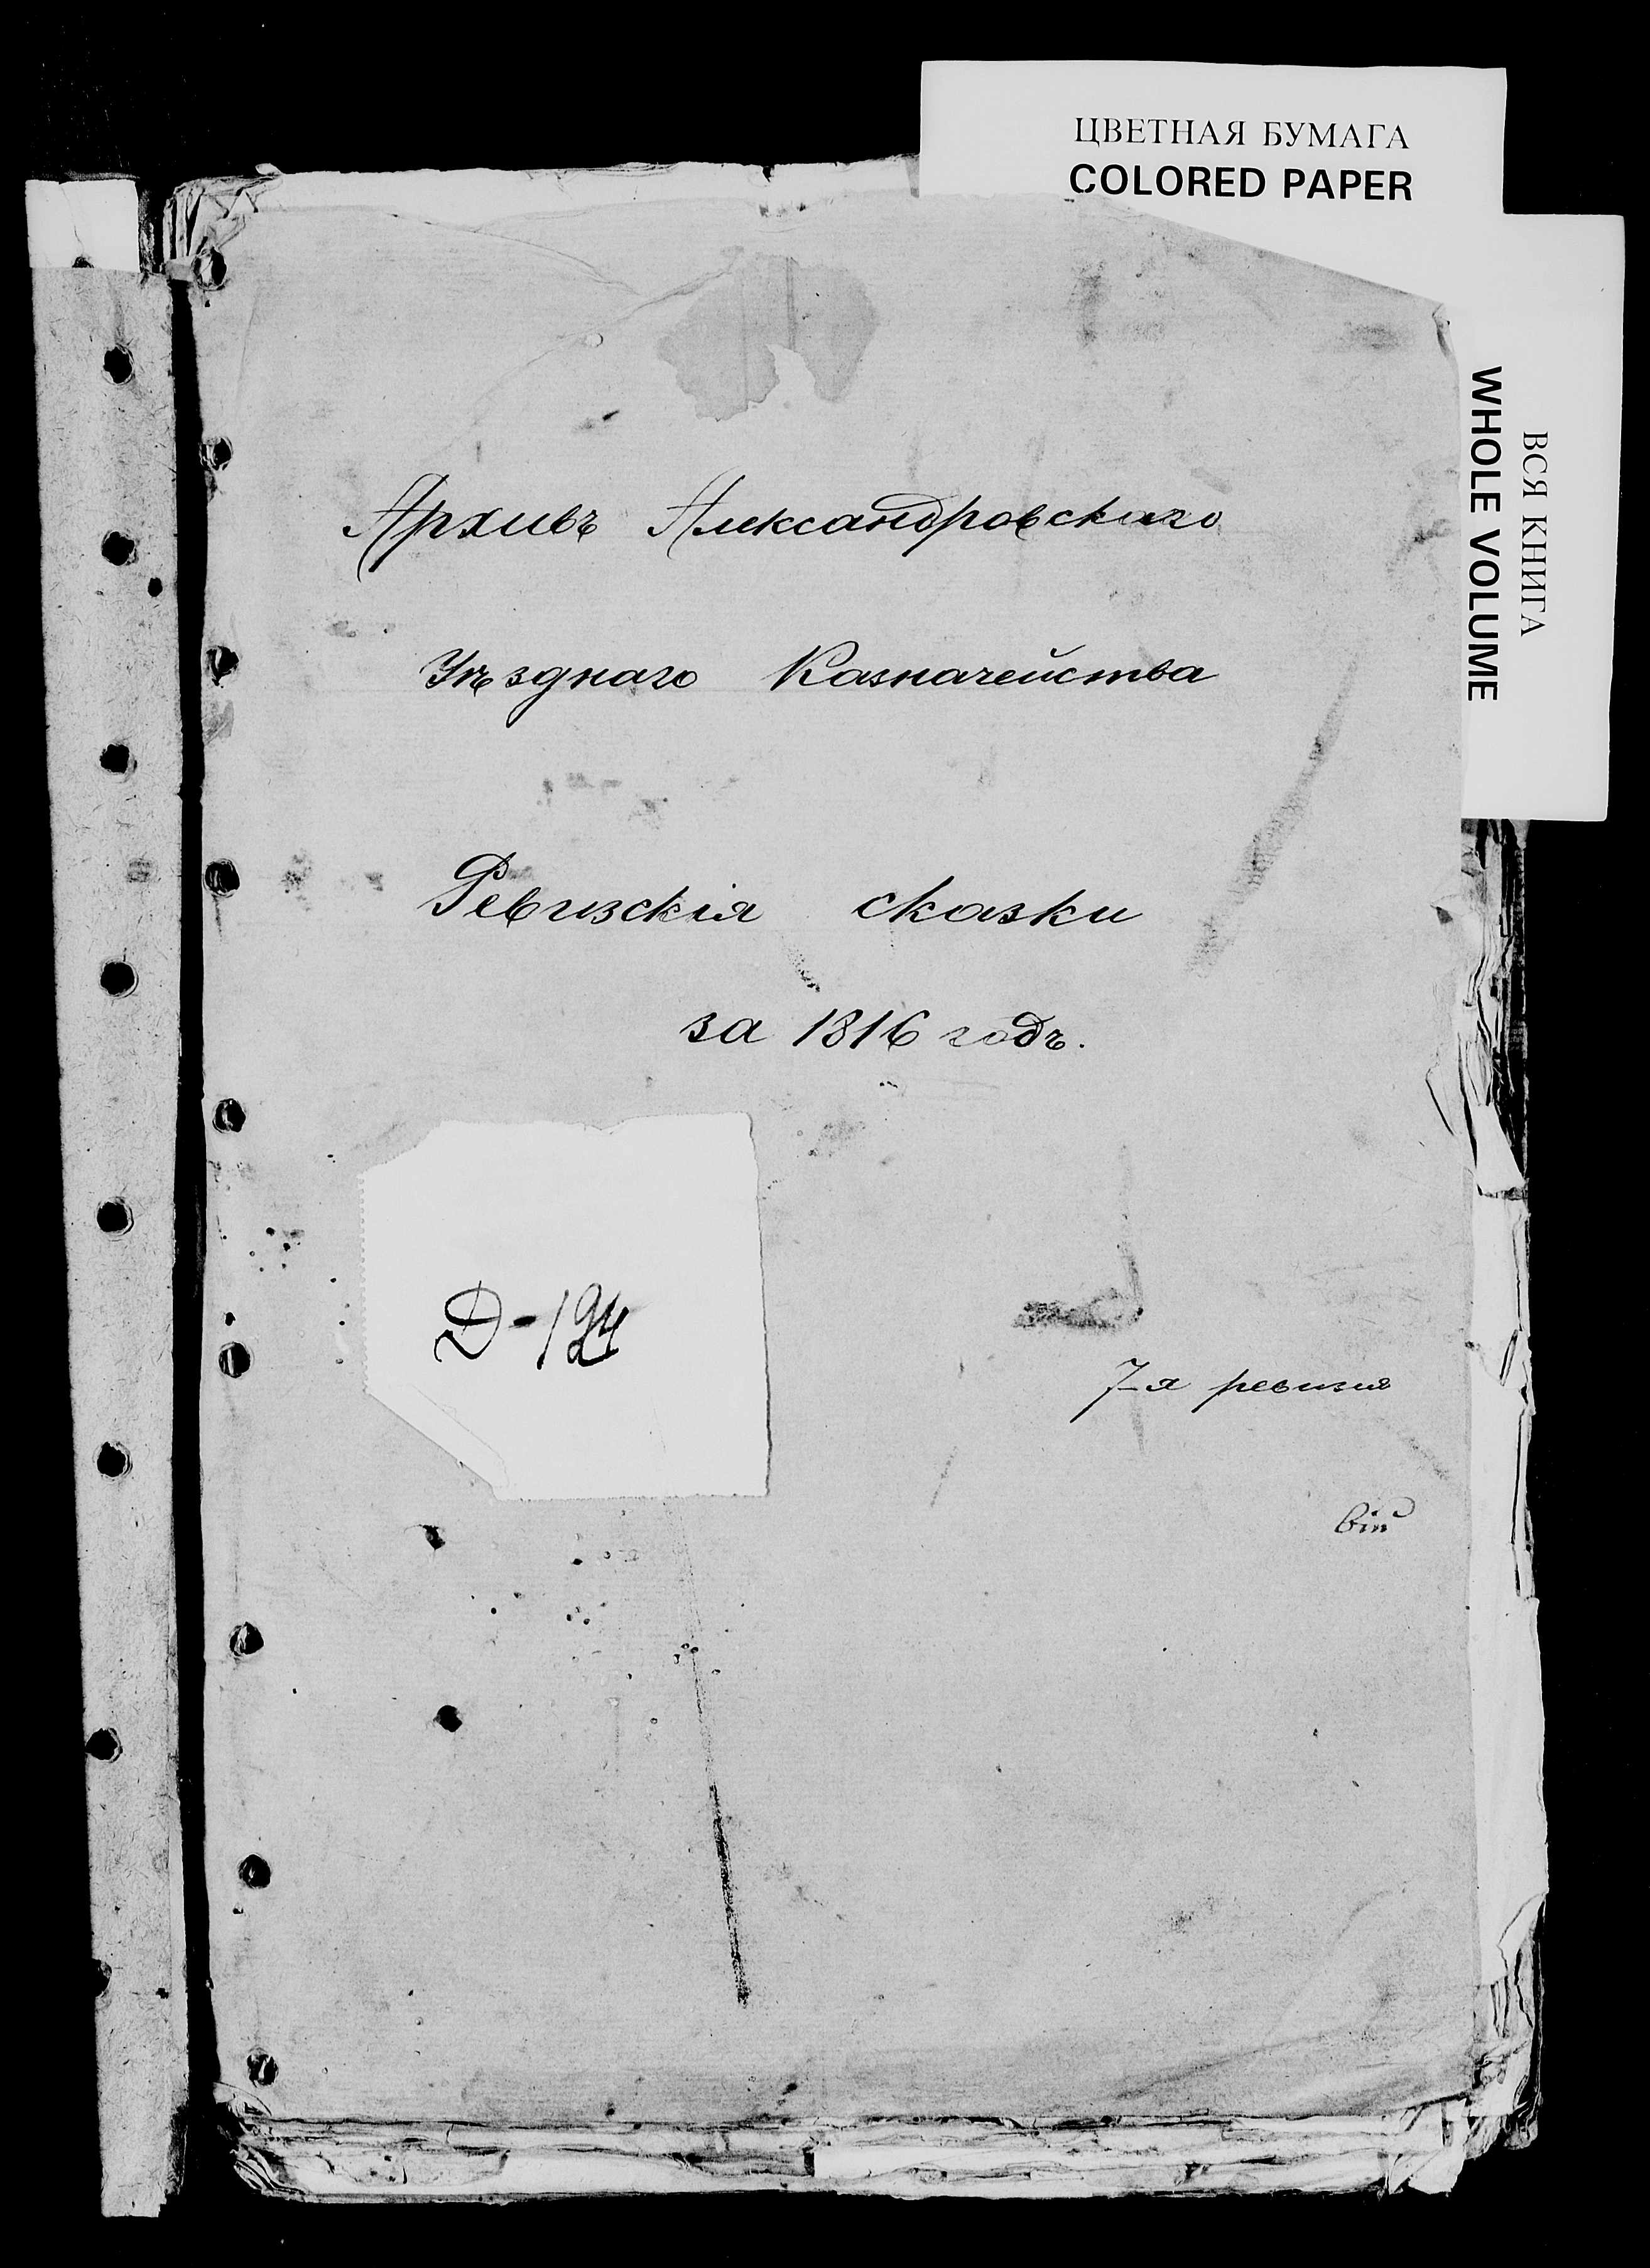 ЦВЕТНАЯ БУМАГА
COLORED PAPER
ВСЯ КНИГА
WHOLE VOLUME
Архивъ Александровскаго
Уѣзднаго Казначейства
Ревизскія сказки
за 1816 годъ.
7-я ревизия